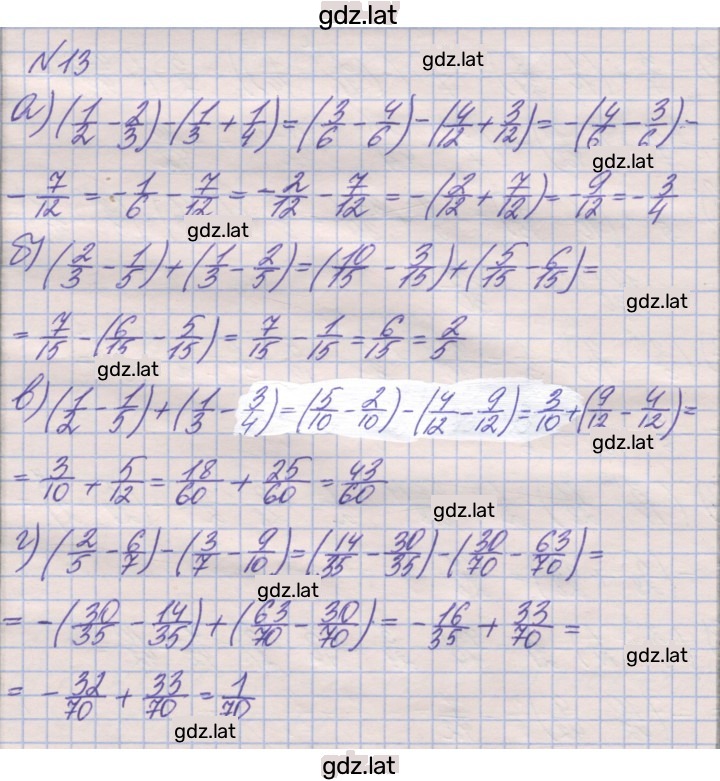 gdz.lat
№13
gdz.lat
а) (1/2 - 2/3) - (1/3 + 1/4) = (3/6 - 4/6) - (4/12 + 3/12) = -(4/6 - 3/6) -
gdz.lat
- 7/12 = - 1/6 - 7/12 = - 2/12 - 7/12 = -(2/12 + 7/12) = - 9/12 = - 3/4
gdz.lat
б) (2/3 - 1/5) + (1/3 - 2/5) = (10/15 - 3/15) + (5/15 - 6/15) =
gdz.lat
= 7/15 - (6/15 - 5/15) = 7/15 - 1/15 = 6/15 = 2/5
gdz.lat
в) (1/2 - 1/5) + (1/3 - 3/4) = (5/10 - 2/10) - (4/12 - 9/12) = 3/10 + (9/12 - 4/12) =
gdz.lat
= 3/10 + 5/12 = 18/60 + 25/60 = 43/60
gdz.lat
г) (2/5 - 6/7) - (3/7 - 9/10) = (14/35 - 30/35) - (30/70 - 63/70) =
gdz.lat
= -(30/35 - 14/35) + (63/70 - 30/70) = - 16/35 + 33/70 =
gdz.lat
= - 32/70 + 33/70 = 1/70
gdz.lat
gdz.lat